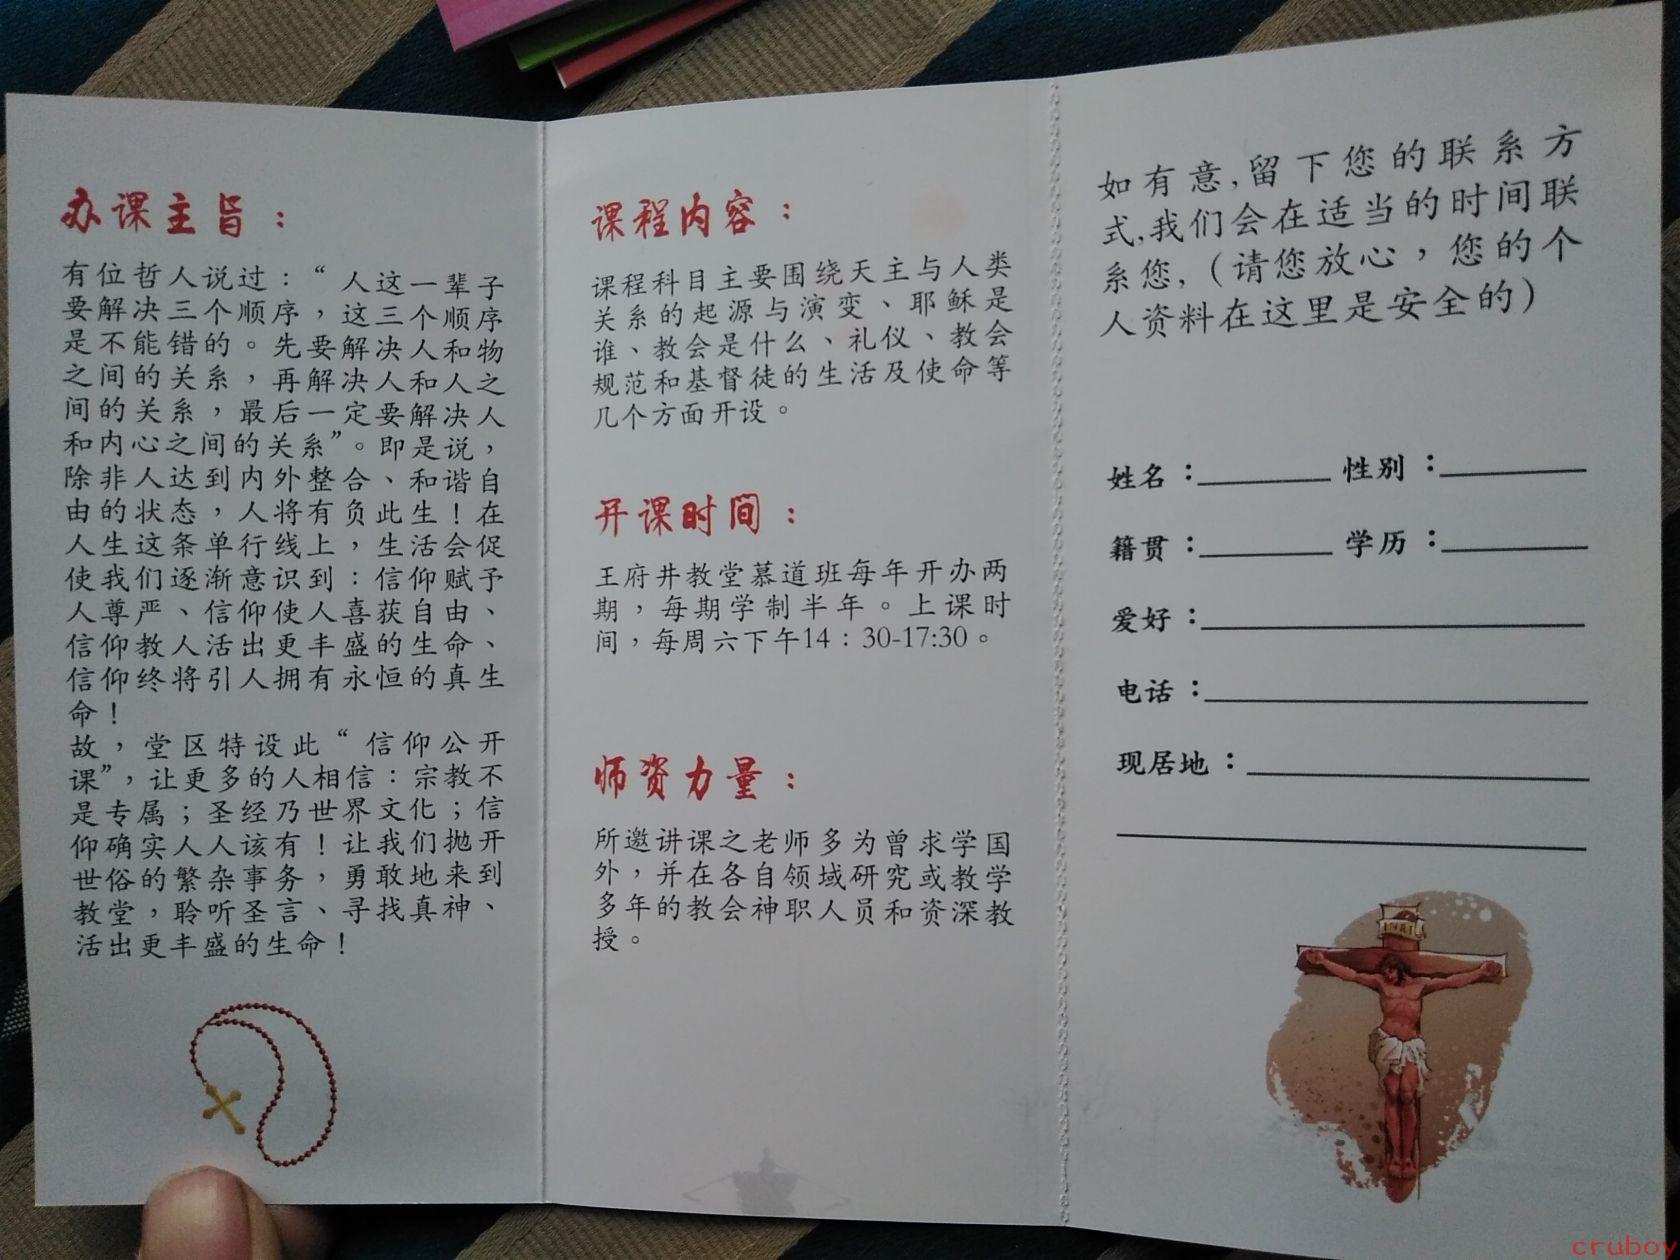 办课主旨：
有位哲人说过：“人这一辈子
要解决三个顺序，这三个顺序
是不能错的。先要解决人和物
之间的关系，再解决人和人之
间的关系，最后一定要解决人
和内心之间的关系”。即是说，
除非人达到内外整合、和谐自
由的状态，人将有负此生！在
人生这条单行线上，生活会促
使我们逐渐意识到：信仰赋予
人尊严、信仰使人喜获自由、
信仰教人活出更丰盛的生命、
信仰终将引人拥有永恒的真生
命！
故，堂区特设此“信仰公开
课”，让更多的人相信：宗教不
是专属；圣经乃世界文化；信
仰确实人人该有！让我们抛开
世俗的繁杂事务，勇敢地来到
教堂，聆听圣言、寻找真神、
活出更丰盛的生命！
课程内容：
课程科目主要围绕天主与人类
关系的起源与演变、耶稣是
谁、教会是什么、礼仪、教会
规范和基督徒的生活及使命等
几个方面开设。
开课时间：
王府井教堂慕道班每年开办两
期，每期学制半年。上课时
间，每周六下午14：30-17:30。
师资力量：
所邀讲课之老师多为曾求学国
外，并在各自领域研究或教学
多年的教会神职人员和资深教
授。
如有意,留下您的联系方
式,我们会在适当的时间联
系您,（请您放心，您的个
人资料在这里是安全的）
姓名：________ 性别：________
籍贯：________ 学历：________
爱好：________
电话：________
现居地：________
INRI
cruboy